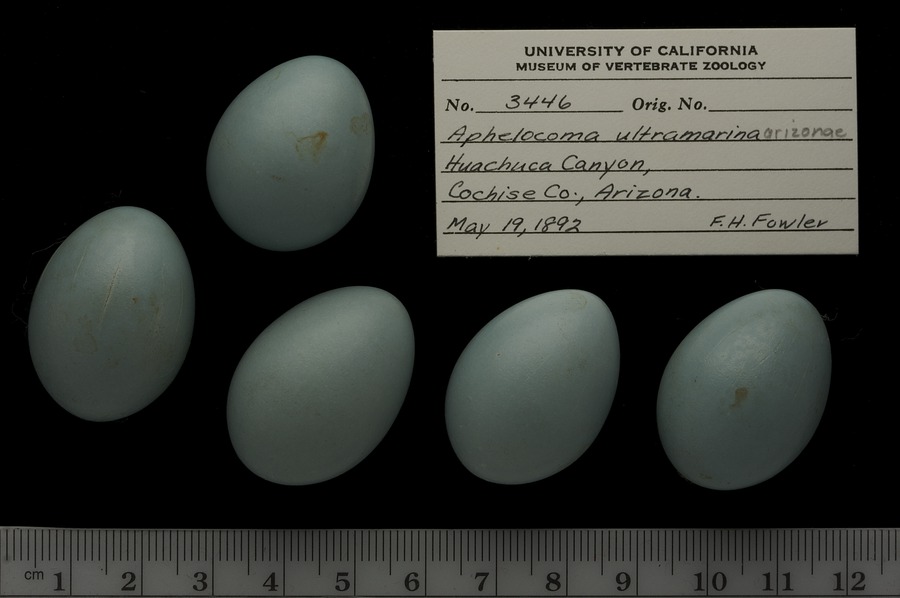 UNIVERSITY OF CALIFORNIA
MUSEUM OF VERTEBRATE ZOOLOGY
No. 3446 Orig. No.
Aphelocoma ultramarina arizonae
Huachuca Canyon,
Cochise Co., Arizona.
May 19, 1892 F.H. Fowler
cm 1 2 3 4 5 6 7 8 9 10 11 12